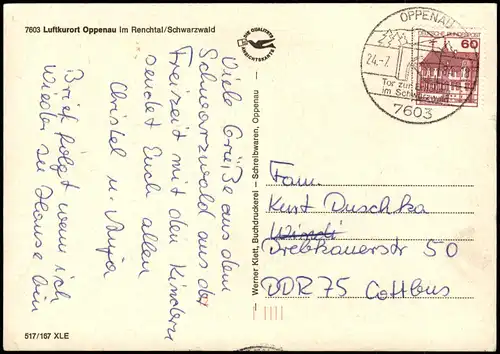 7603 Luftkurort Oppenau im Renchtal/Schwarzwald
DIE QUALITÄTS
ANSICHTSKARTE
OPPENAU
24.-7.
Tor zur
im Schwarzwald
7603
DEUTSCHE BUNDESPOST
60
Viele Grüße aus dem
Schwarzwald aus der
Freizeit mit den Kindern
sendet Euch allen
Christel u. Anja
Brief folgt wenn ich
wieder zu Hause bin
Werner Klett, Buchdruckerei – Schreibwaren, Oppenau
Fam.
Kurt Duschka
Drebkauerstr 50
DDR 75 Cottbus
517/167 XLE